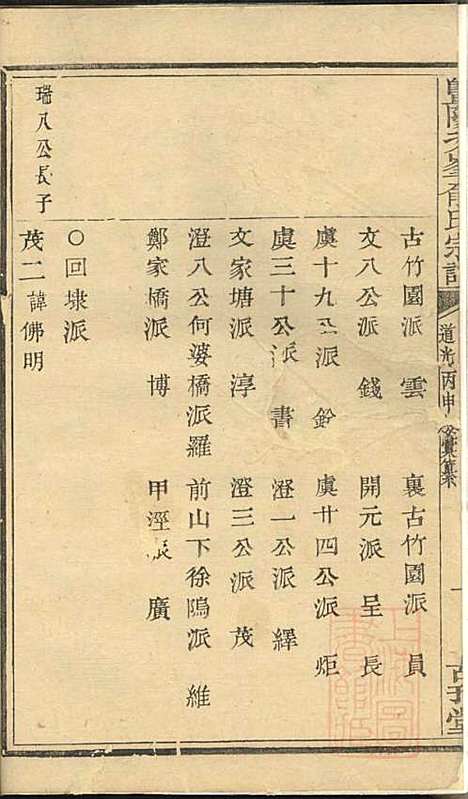 氏宗譜
道光丙申
古竹園派 雲 裏古竹園派 員
文八公派 錢 開元派 呈 長
虞十九公派 鈐 虞廿四公派 炬
虞三十公派 書 澄一公派 繹
文家塘派 淳 澄三公派 茂
澄八公何婆橋派 羅 前山下徐隖派 維
鄭家橋派 博 甲涇派 廣
〇回埭派
瑞八公長子 茂二 諱佛明